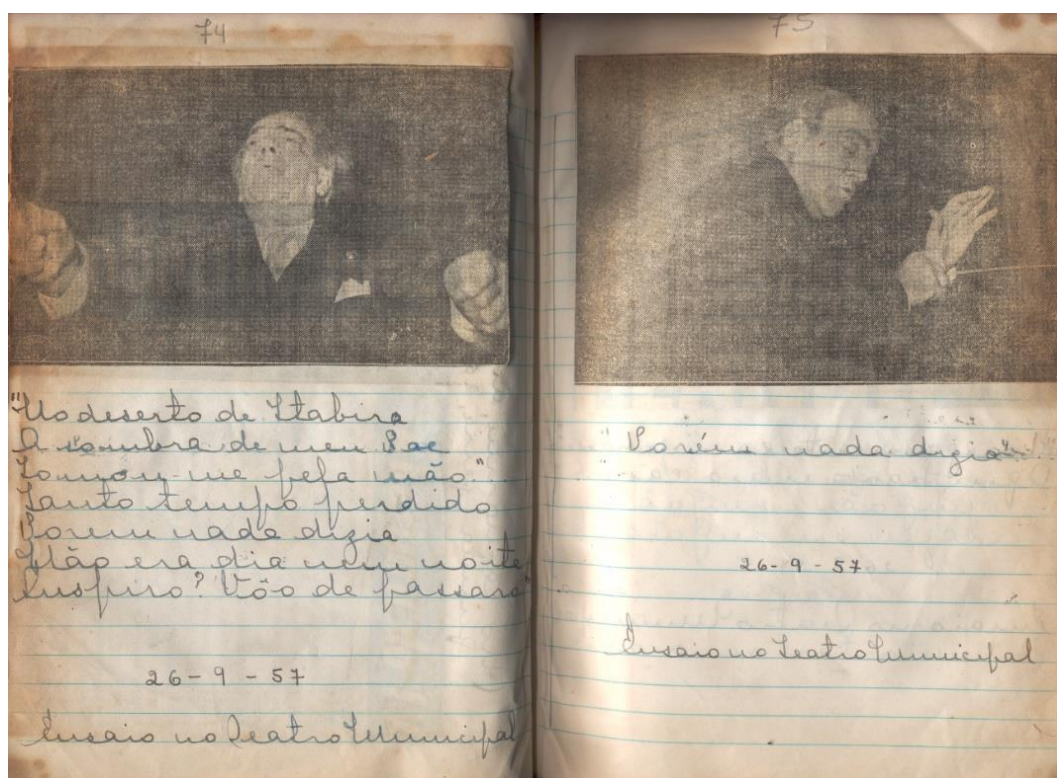 74
"No deserto de Itabira
A sombra de meu Pae
Tomou-me pela mão"
Tanto tempo perdido
Porem nada dizia
Não era dia nem noite
Suspiro? Vôo de passaro"
26-9-57
Ensaio no Teatro Municipal
75
"Porém nada dizia"
26-9-57
Ensaio no Teatro Municipal